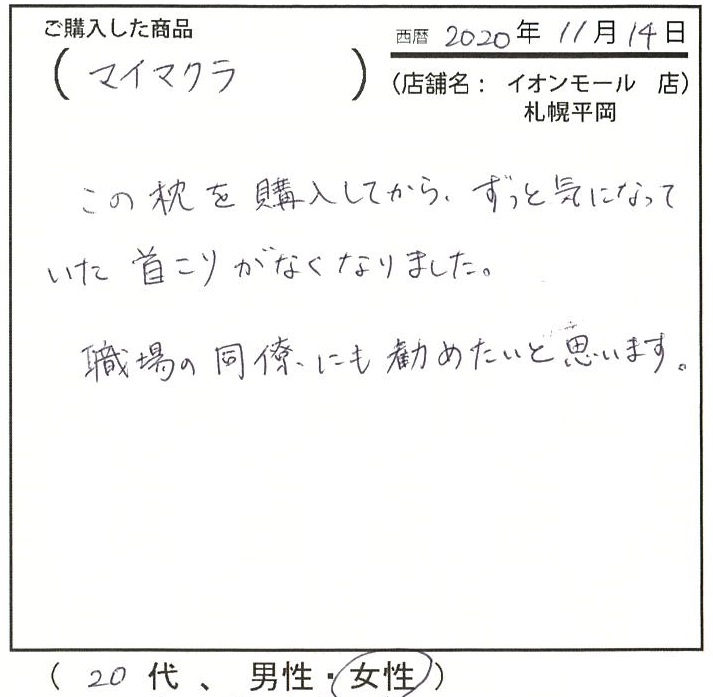 ご購入した商品
西暦 2020年 11月 14日
( マイマクラ )
(店舗名： イオンモール 店)
札幌平岡
この枕を購入してから、ずっと気になって
いた首こりがなくなりました。
職場の同僚にも勧めたいと思います。
( 20代、男性・女性 )